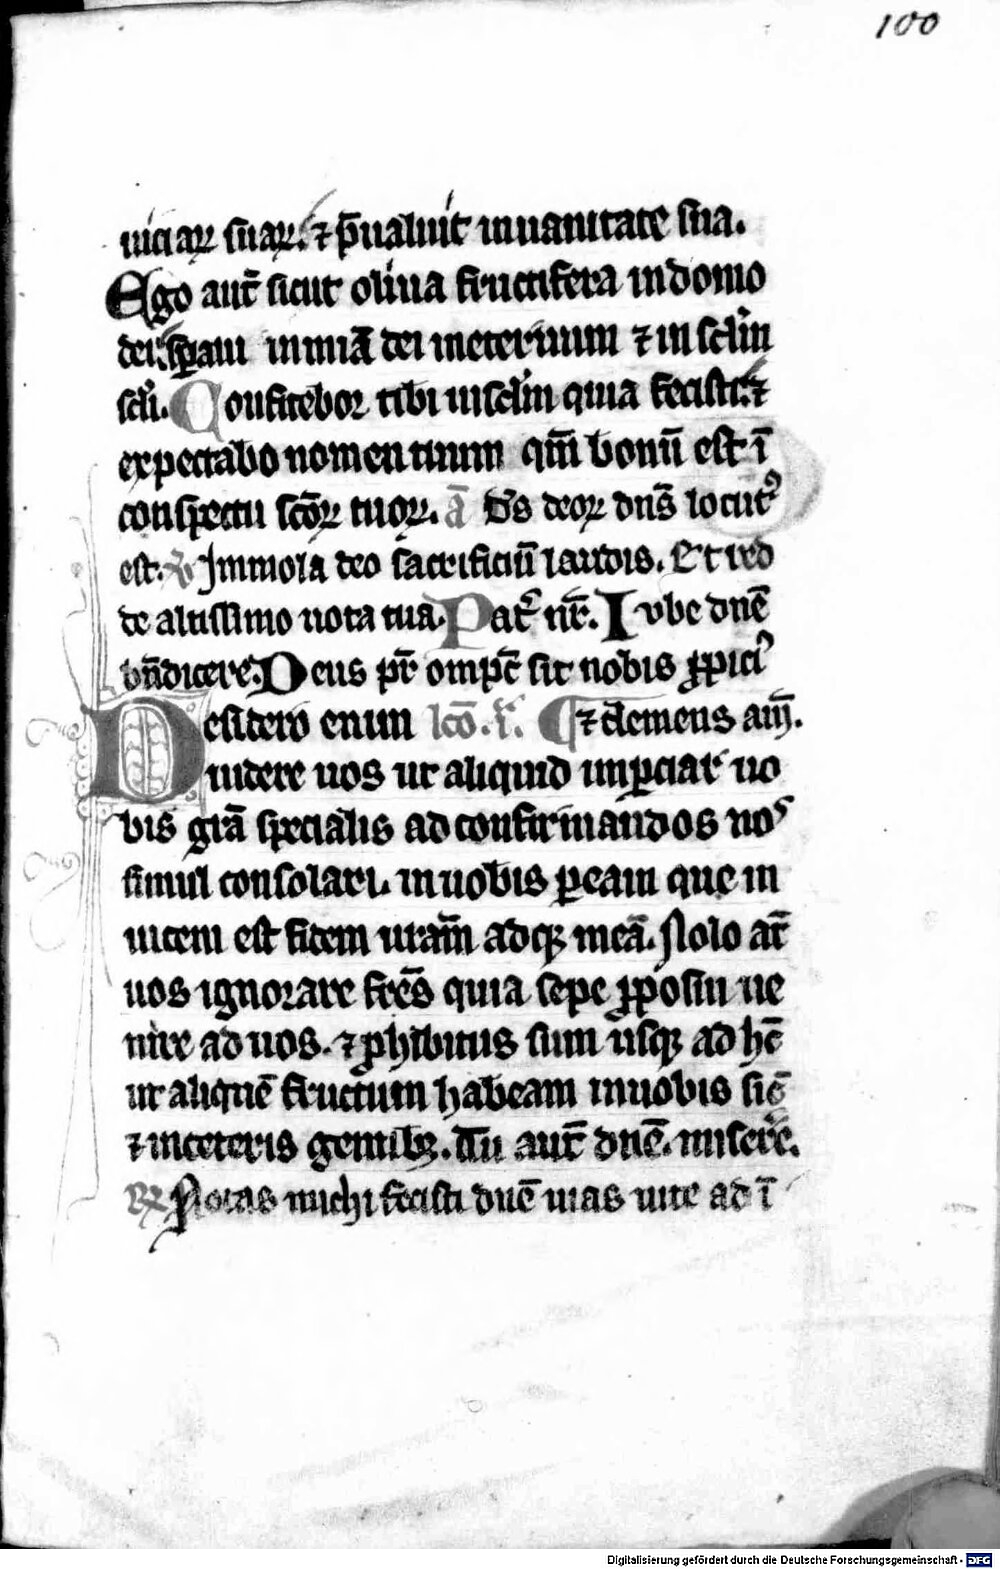 100
uiciaꝝ suaꝝ. ⁊ p̄ualuit in uanitate sua.
Ego aut̄ sicut oliua fructifera in domo
dei. sꝑaui in mīa dei in eternum ⁊ in sclm̄
scli. Confitebor tibi in sclm̄ quia fecisti. ⁊
expectabo nomen tuum qm̄ bonū est ī
conspectu sc̄oꝝ tuoꝝ. ā D̄s deoꝝ dn̄s locutꝰ
est. Immola deo sacrificiū laudis. Et red
de altissimo uota tua. Pat̄ nr̄. Iube dn̄e
bn̄dicere. Deus pr̄ omp̄c sit nobis ꝓpiciꝰ
Desidero enim lc̄o. i. ⁊ clemens am̄.
uidere uos ut aliquid imꝑciar uo
bis gr̄a specialis ad confirmandos uos
simul consolari. in uobis ꝑ eam que in
uicem est fidem uram̄ adqꝫ meā. Nolo at̄
uos ignorare fr̄es quia sepe ꝓposui ue
nire ad uos. ⁊ ꝓhibitus sum usqꝫ ad hc̄
ut aliquē fructum habeam in uobis sic̄
⁊ in ceteris gentibꝫ. Tu aut̄ dn̄e. miserē.
Notas michi fecisti dn̄e uias uite ad ī
Digitalisierung gefördert durch die Deutsche Forschungsgemeinschaft - DFG